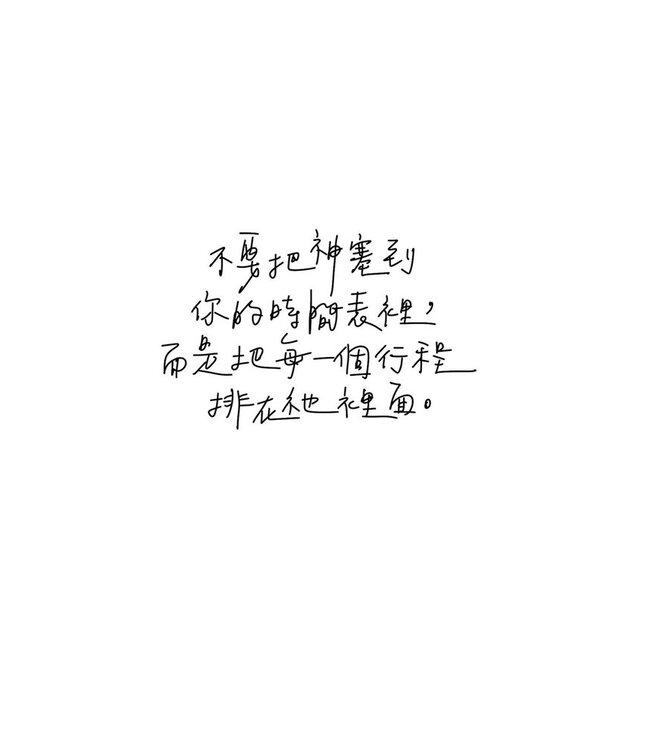 不要把神塞到
你的時間表裡，
而是把每一個行程
排在祂裡面。